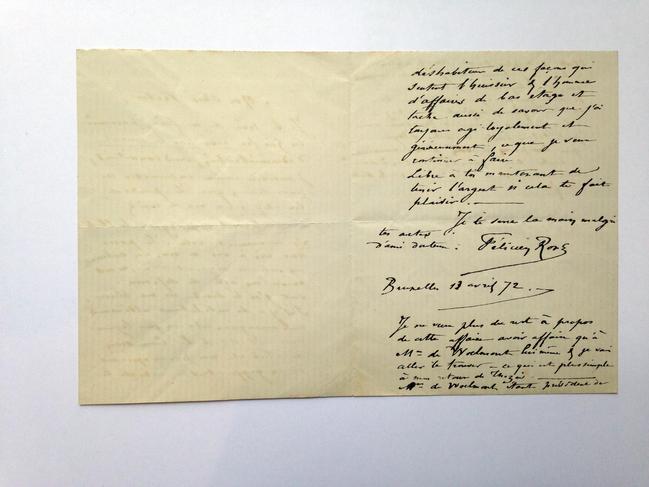 déshabituer de ces façons qui
sentent l'huissier & l'homme
d'affaires de bas étage et
tâche aussi de savoir que j'ai
toujours agi loyalement et
généreusement, ce que je veux
continuer à faire.
Libre à toi maintenant de
tenir l'argent si cela te fait
plaisir. —
Je te serre la main malgré
tes actes
d'ami douteux : Félicien Rops
Bruxelles 13 avril 72. —
Je ne veux plus du reste à propos
de cette affaire avoir affaire qu'à
Mr de Woelmont lui même & je vais
aller le trouver — ce qui est plus simple
à mon retour de Thozée. —
Mr de Woelmont